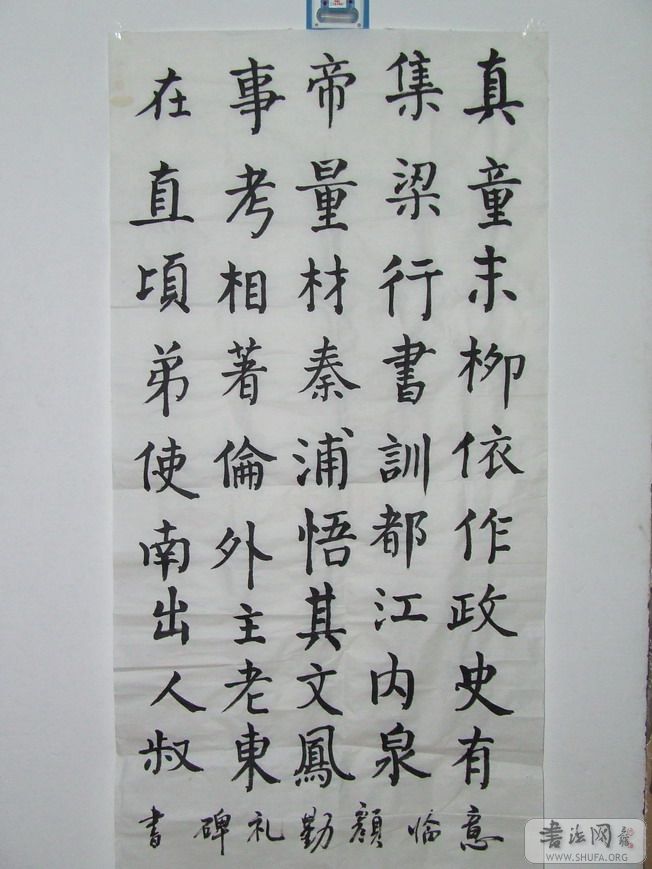 真童未柳依作政史有
集梁行書訓都江内泉
帝量材秦浦悟其文鳳
事考相著倫外主老東
在直頃弟使南出人叔
意临顔勤礼碑書
書法网
WWW.SHUFA.ORG